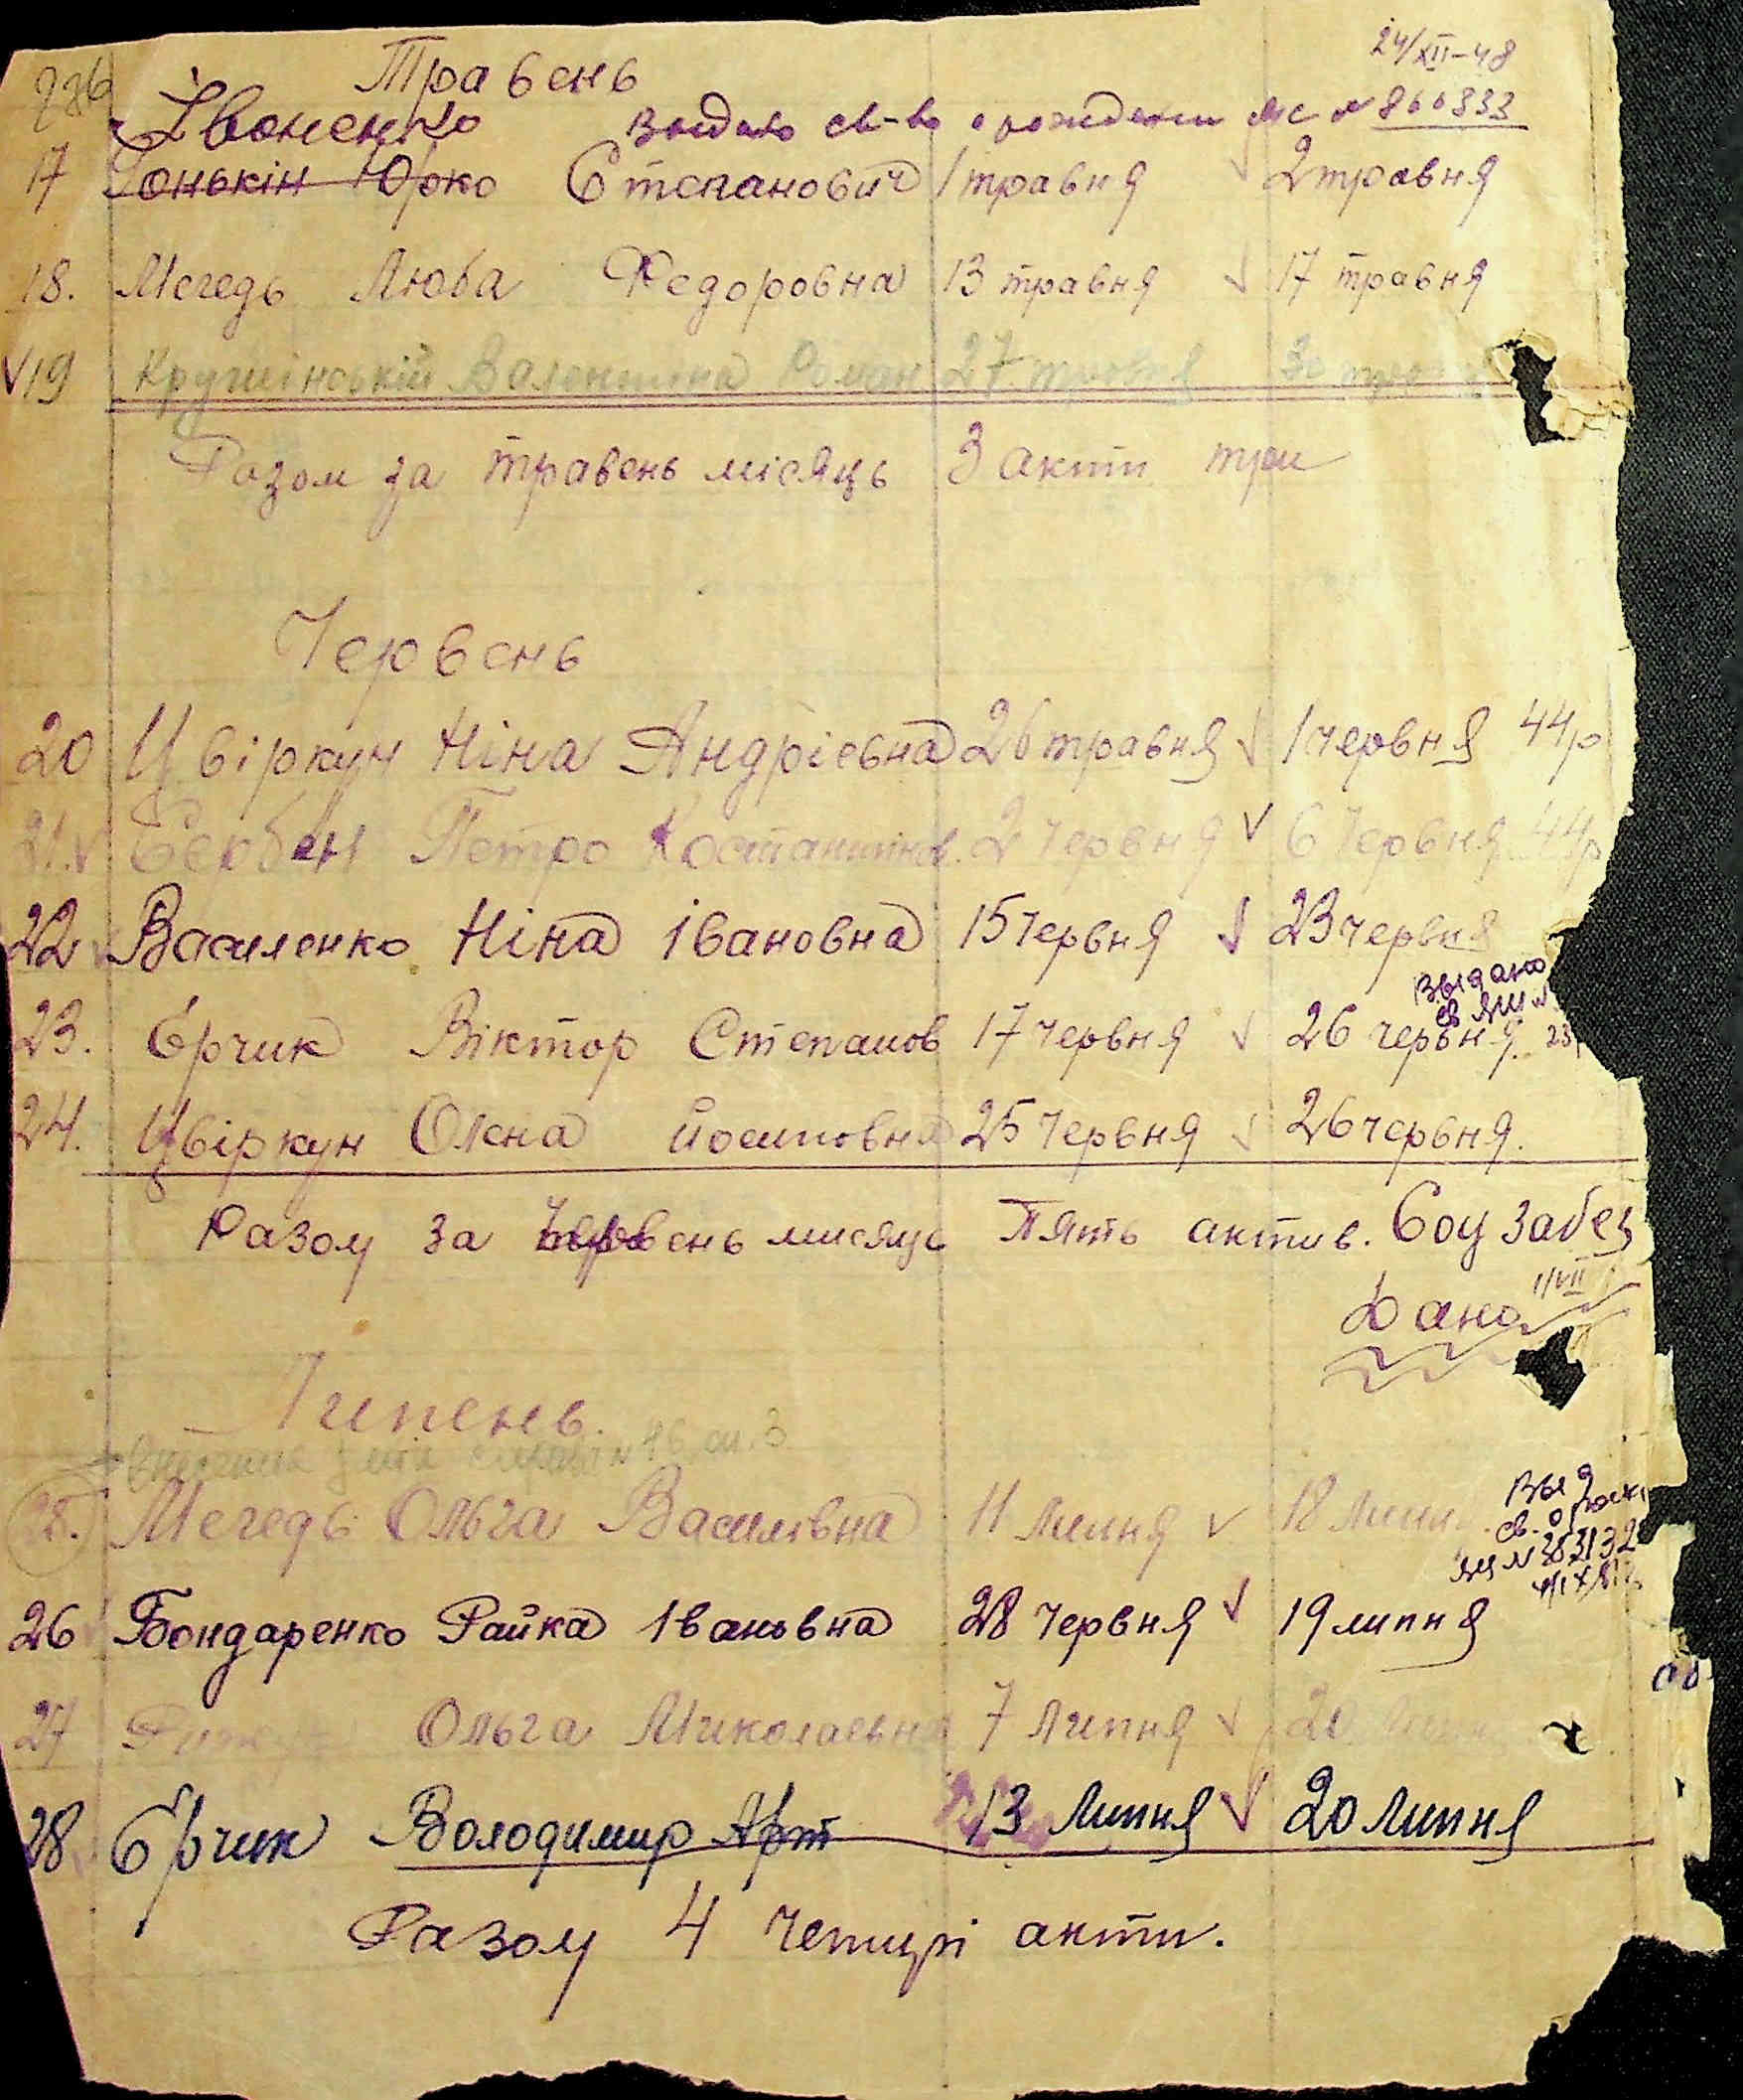 24/XII-48
Травень
Івоненко Выдано св-во о рождении № 866333
17 Гонькін Юрко Степанович 1 травня 2 травня
18. Мегедь Люба Федоровна 13 травня 17 травня
19 Валентина Роман 27 травня 30
Разом за травень місяць 3 акти три
Червень
20 Цвіркун Ніна Андрієвна 26 травня 1 червня 44р
21. Сербин Петро Костантинов. 2 червня 6 червня 44р
22 Василенко Ніна Івановна 15 червня 23 червня
Выдано
23. Єрчик Віктор Степанов 17 червня 26 червня. 23
24. Цвіркун Олена Йосиповна 25 червня 26 червня.
Разом за Червень мисяць Пять актив. Соцзабез
Дано 1/VII
Липень.
Выд
28. Мегедь Ольга Василівна 11 липня 18 липня
св. о
26 Бондаренко Райка Івановна 28 червня 19 липня
27 Ольга Миколаевна 7 липня 20
28 Єрчик Володимир Арт 13 липня 20 липня
Разом 4 четирі акти.